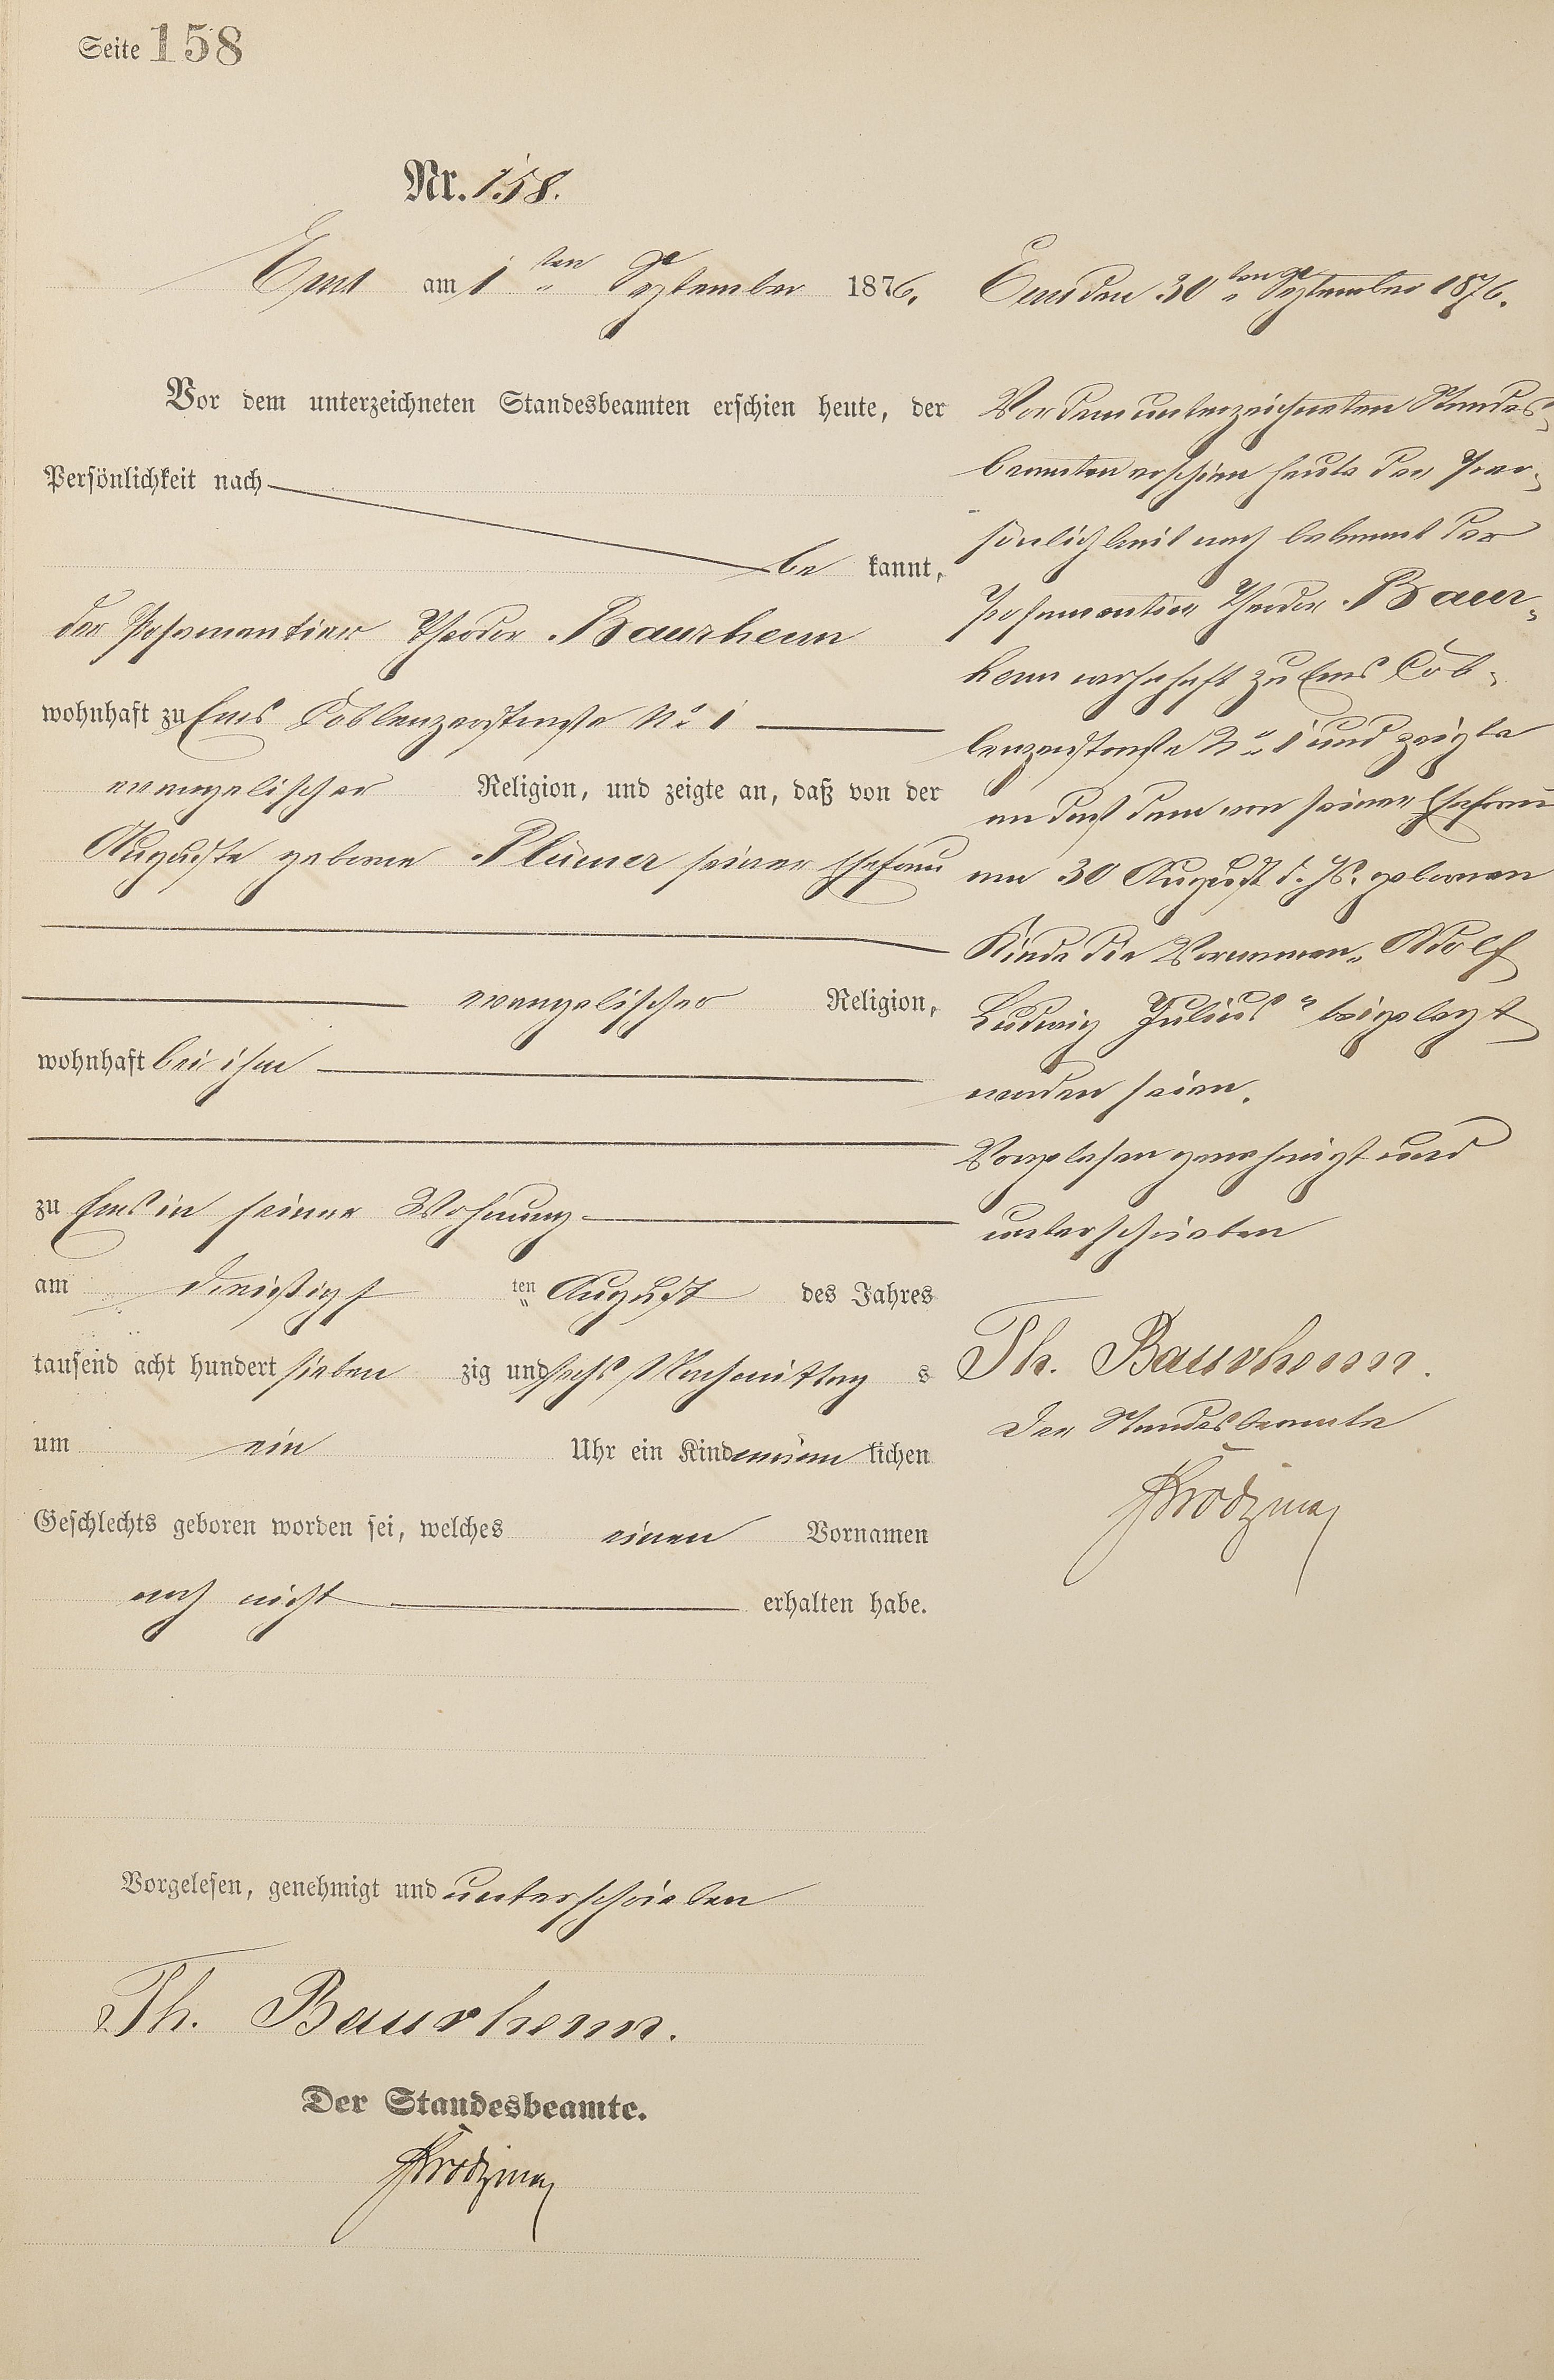 Seite 158
Nr. 158.
Ems am 1ten September 1876.
Vor dem unterzeichneten Standesbeamten erschien heute, der
Persönlichkeit nach
be kannt,
der Posamentier Theodor Baurhenn
wohnhaft zu Ems Coblenzerstraße No 1
evangelischer Religion, und zeigte an, daß von der
Auguste geborne Plümer seiner Ehefrau
evangelischer Religion,
wohnhaft bei ihm
zu Ems in seiner Wohnung
am dreißigst ten August des Jahres
tausend acht hundert sieben zig und sechs Nachmittag s
um ein Uhr ein Kind männ lichen
Geschlechts geboren worden sei, welches einen Vornamen
noch nicht erhalten habe.
Vorgelesen, genehmigt und unterschrieben
Th. Baurhenn.
Der Standesbeamte.
Ems den 30ten September 1876.
Vor dem unterzeichneten Standes-
beamten erschien heute der Per-
sönlichkeit nach bekannt der
Posamentier Theodor Baur-
henn wohnhaft zu Ems Cob-
lenzerstraße No 1 und zeigte
an daß dem von seiner Ehefrau
am 30 August d. Js. gebornen
Kinde die Vornamen „Adolf
Ludwig Julius“ beigelegt
worden seien.
Vorgelesen genehmigt und
unterschrieben
Th. Baurhenn.
Der Standesbeamte